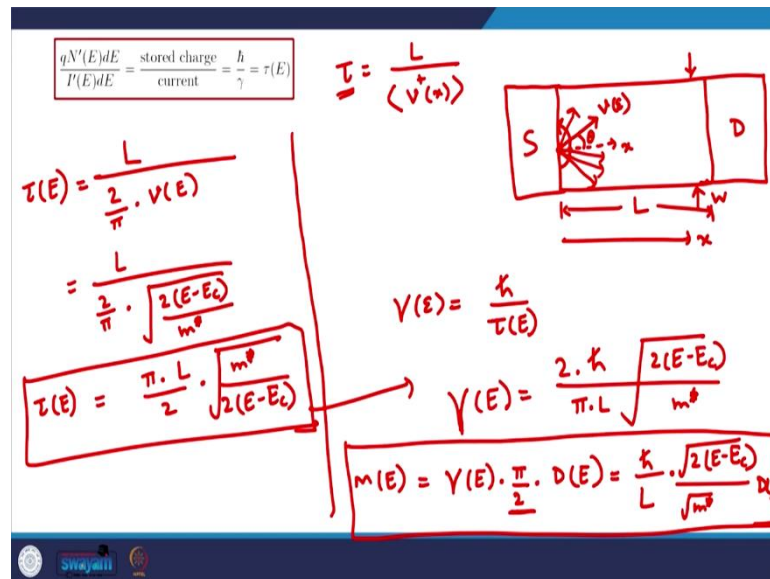 qN′(E)dE / I′(E)dE = stored charge / current = ħ / γ = τ(E)
τ = L / ⟨v⁺(x)⟩
τ(E) = L / (2/π · v(E))
= L / (2/π · √(2(E-Ec) / m*))
τ(E) = π·L / 2 · √(m* / 2(E-Ec))
S
D
v(E)
θ
x
L
W
x
γ(E) = ħ / τ(E)
γ(E) = 2·ħ / π·L √(2(E-Ec) / m*)
M(E) = γ(E) · π/2 · D(E) = ħ/L · √2(E-Ec) / √m* D(
swayam